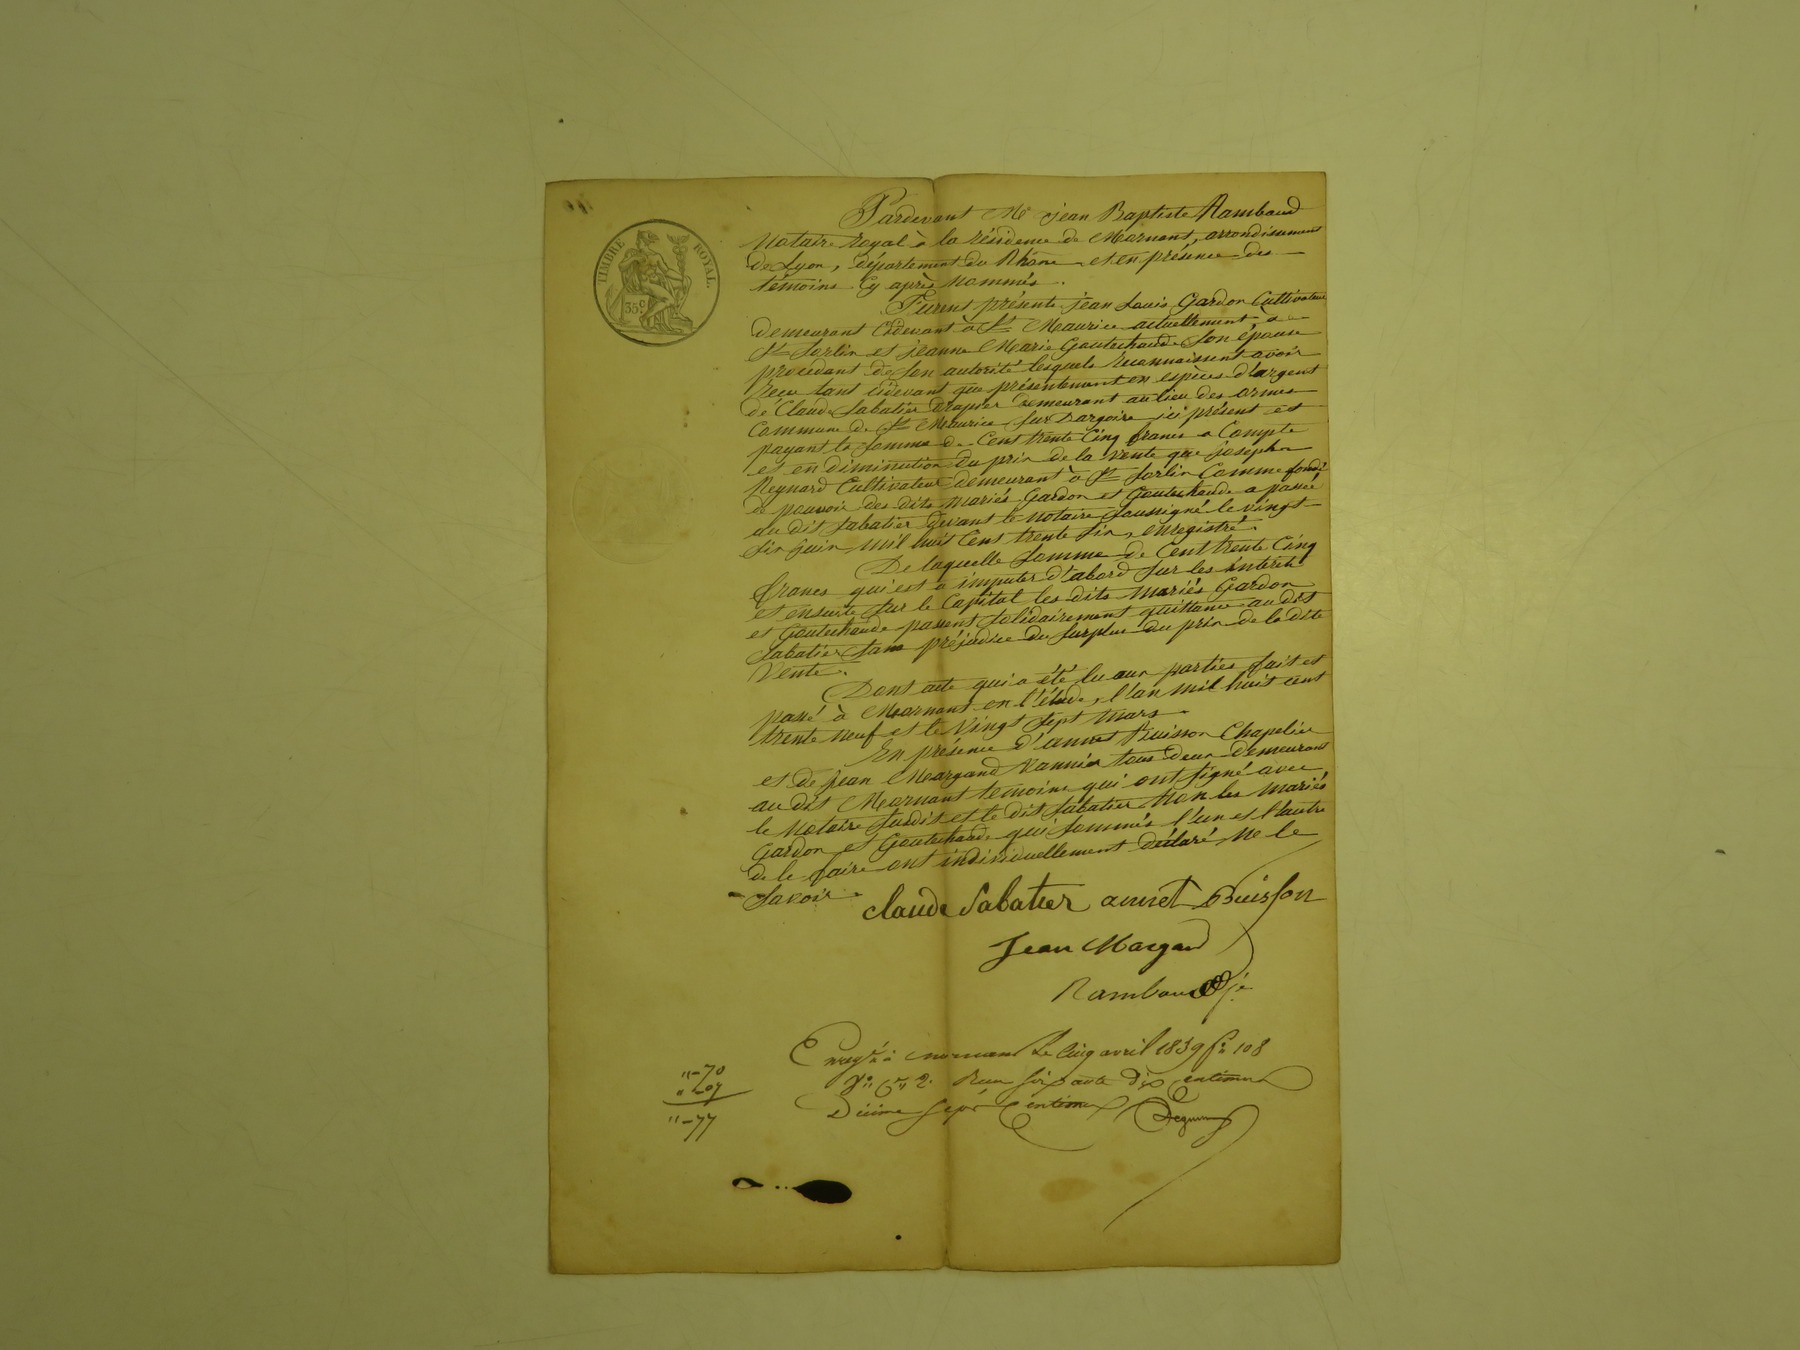 TIMBRE ROYAL.
35 c.
Pardevant Me jean Baptiste Rambaud
Notaire royal à la résidence de Mornant, arrondissement
de Lyon, département du Rhône et en présence des
témoins Cy après nommés.
Furent présents jean Louis Gardon Cultivateur
demeurant Cidevant à St Maurice actuellement à
St Sorlin et jeanne Marie Goutechaude Son épouse
procédant de Son autorité lesquels reconnaissent avoir
Reçu tant Cidevant que présentement en espèces d'argent
de Claude Sabatier Drapier demeurant au lieu des ormes
Commune de St Maurice Sur Dargoire ici présent et
payant la Somme de Cent trente Cinq francs a Compte
et en diminution du prix de la vente que joseph
Reynard Cultivateur demeurant à St Sorlin Comme fondé
de pouvoir des dits mariés Gardon et Goutechaude a passée
au dit Sabatier devant le Notaire Soussigné le vingt
Six juin mil huit Cent trente Six, enregistré.
De laquelle Somme de Cent trente Cinq
francs qui est a imputer d'abord Sur les interets
et ensuite Sur le Capital les dits mariés Gardon
et Goutechaude passent Solidairement quittance au dit
Sabatier Sans préjudice du Surplus du prix de la dite
Vente.
Dont acte qui a été lu aux parties fait et
passé à Mornant en l'étude, l'an mil huit cent
trente neuf et le Vingt Sept mars.
En présence d'annet Buisson Chapelier
et de jean Margand Vannier tous deux demeurant
au dit Mornant temoins qui ont Signé avec
le Notaire Susdit et le dit Sabatier Non les mariés
Gardon et Goutechaude qui Sommés l'un et l'autre
de le faire ont individuellement déclaré Ne le
Savoir.
Claude Sabatier annet Buisson
Jean Margand
Rambaud
Enregré à mornant Le Cinq avril 1839 fo 108
Vo Ce 2. Reçu Soixante dix Centimes
Décime Sept Centimes
"-70
"-07
"-77